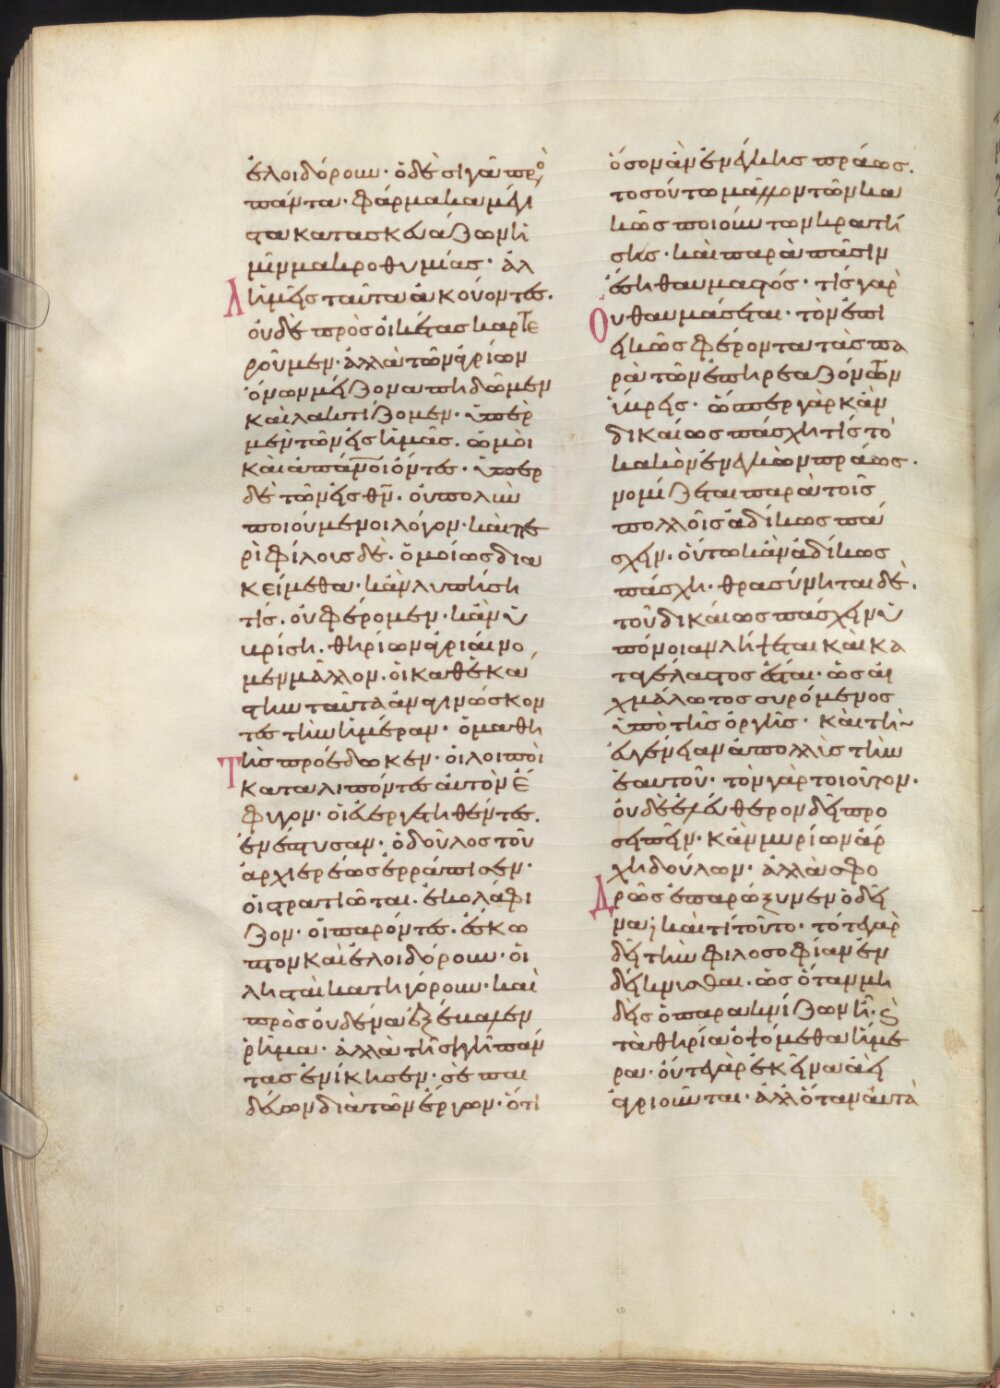 ἐλοιδόρουν· ὁ δὲ σιγᾷ πρὸ
πάντα· φάρμακα μέγι
στα κατασκευάζων ἡ
μῖν μακροθυμίας· ἀλ
λ ἡμεῖς ταῦτα ἀκούοντες.
οὐδὲ πρὸς οἰκέτας καρτε
ροῦμεν· ἀλλὰ τῶν ἀγρίων
ὄνων μείζονα πηδῶμεν
καὶ λακτίζομεν· ὑπὲρ
μὲν τῶν εἰς ἡμᾶς. ὠμοὶ
καὶ ἀπάν̅οι ὄντες· ὑπὲρ
δὲ τῶν εἰς θν̅. οὐ πολὺν
ποιούμενοι λόγον· καὶ πε
ρὶ φίλους δὲ. ὁμοίως δια
κείμεθα· κἂν λυπήσῃ
τίς. οὐ φέρομεν· κἂν ὑ
βρίσῃ. θηρίων ἀγριαίνο
μεν μᾶλλον. οἱ καθ ἑκά
στην ταῦτα ἀναγινώσκον
τες τὴν ἡμέραν· ὁ μαθη
τὴς προέδωκεν· οἱ λοιποὶ
καταλιπόντες αὐτὸν ἔ
φυγον· οἱ εὐεργετηθέντες.
ἐνέπτυσαν· ὁ δοῦλος τοῦ
ἀρχιερέως ἐρράπισεν·
οἱ στρατιῶται. ἐκολάφι
ζον· οἱ παρόντες. ἔσκω
πτον καὶ ἐλοιδόρουν· οἱ
λῃσταὶ κατηγόρουν· καὶ
πρὸς οὐδένα ἐξέβαλεν
ῥῆμα· ἀλλὰ τῇ σιγῇ πάν
τας ἐνίκησεν· σὲ παι
δεύων διὰ τῶν ἔργων· ὅτι
ὅσον ἂν ἐνέγκῃς πράως.
τοσούτω μᾶλλον τῶν κα
κῶς ποιούντων κρατή
σῃς· καὶ παρὰ πᾶσιν
ἔσῃ θαυμαστός· τίς γὰρ
οὐ θαυμάσεται· τὸν ἐπι
εικῶς φέροντα τὰς πα
ρὰ τῶν ἐπηρεαζόντων
ὕβρεις· ὥσπερ γὰρ κἂν
δικαίως πάσχῃ τίς τὸ
κακὸν ἐνεγκὼν πράως.
νομίζεται παρὰ τοῖς
πολλοῖς ἀδίκως πά
σχειν. οὕτω κἂν ἀδίκως
πάσχῃ. θρασύνηται δὲ.
τοῦ δικαίως πάσχειν ὑ
πόνοιαν λήψεται καὶ κα
ταγέλαστος ἔσται· ὡς αἰ
χμάλωτος συρόμενος
ὑπὸ τῆς ὀργῆς· καὶ τὴν
εὐγένειαν ἀπολλὺς τὴν
ἑαυτοῦ· τὸν γὰρ τοιοῦτον.
οὐδὲ ἐλεύθερον δεῖ προ
σειπεῖν. κἂν μυρίων ἄρ
χῃ δούλων· ἀλλὰ σφο
δρῶς ἐπαρώξυνεν ὁ δεῖ
να; καὶ τί τοῦτο· τότε γὰρ
δεῖ τὴν φιλοσοφίαν ἐν
δείκνυσθαι. ὡς ὅταν μη
δεὶς ὁ παρακνίζων ᾖ· καὶ
τὰ θηρία ὀψόμεθα ἥμε
ρα· οὔτε γὰρ ἐκεῖνα ἀεὶ
ἀγριοῦνται. ἀλλ ὅταν αὐτὰ